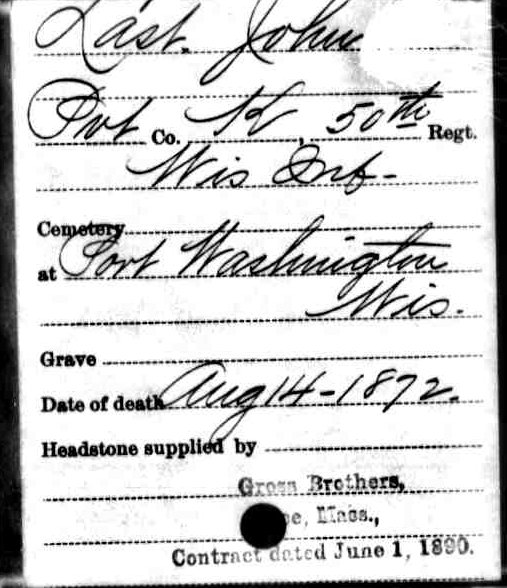 Last. John
Pvt Co. K, 50th Regt.
Wis Inf-
Cemetery
at Port Washington
Wis.
Grave
Date of death Aug 14-1872.
Headstone supplied by
Gross Brothers,
Mass.,
Contract dated June 1, 1890.